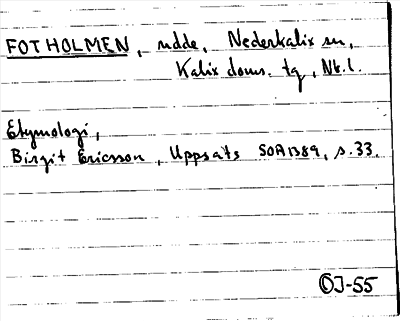 FOTHOLMEN, udde, Nederkalix sn,
Kalix doms. tg, Nb.l.
Etymologi,
Birgit Ericsson, Uppsats SOA 1389, s.33.
OJ-55